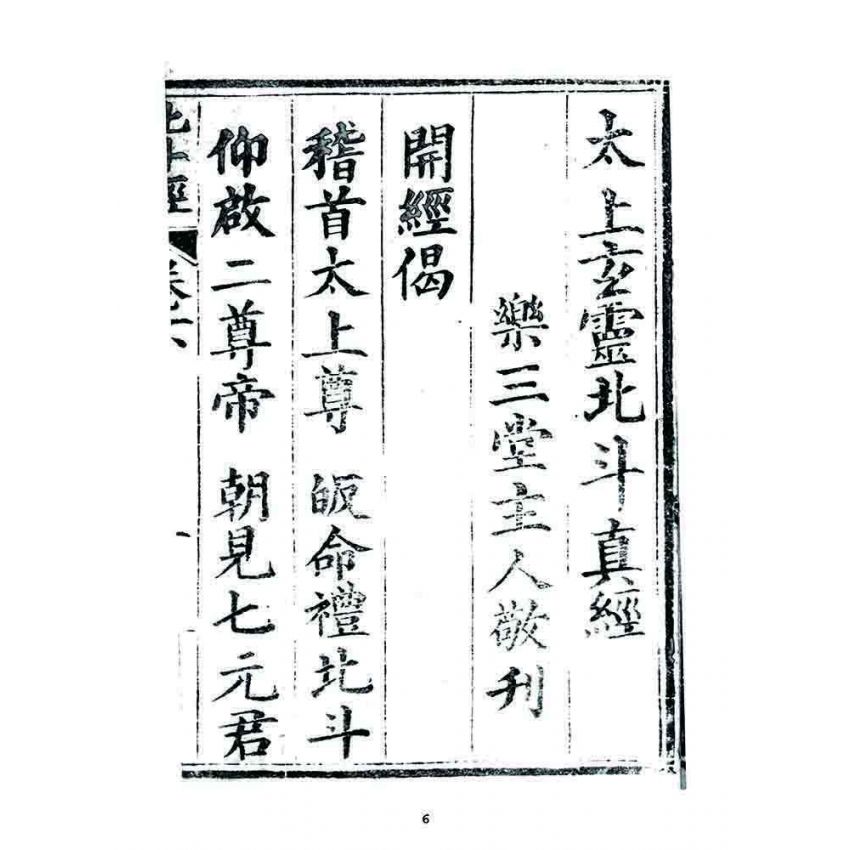 太上玄靈北斗真經
樂三堂主人敬刊
開經偈
稽首太上尊 皈命禮北斗
仰啟二尊帝 朝見七元君
北斗經
一
6